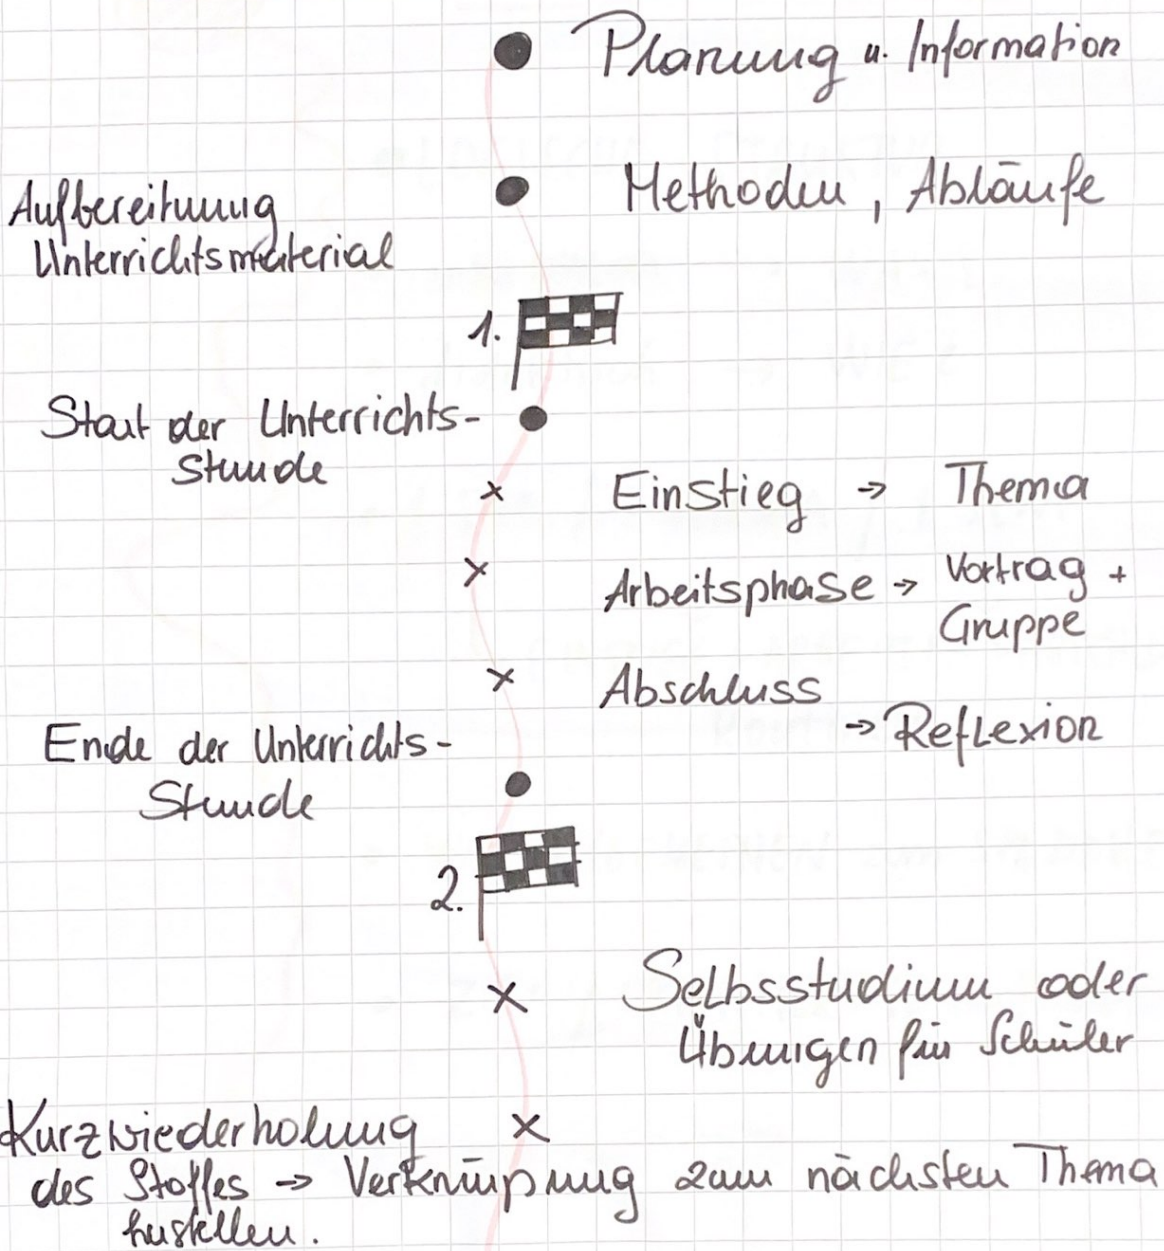 Planung u. Information
Aufbereitung
Unterrichtsmaterial
Methoden, Abläufe
1.
Start der Unterrichts-
Stunde
Einstieg → Thema
Arbeitsphase → Vortrag +
Gruppe
Abschluss
→ Reflexion
Ende der Unterrichts-
Stunde
2.
Selbsstudium oder
Übungen für Schüler
Kurzwiederholung
des Stoffes → Verknüpfung zum nächsten Thema
herstellen.